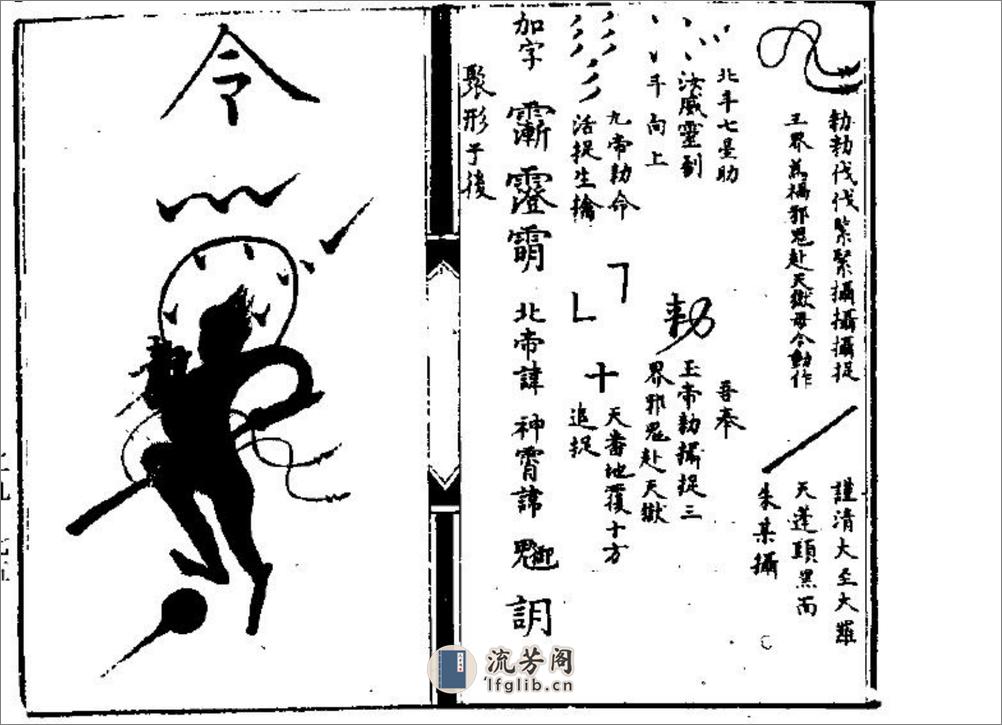 勑勑伐伐緊緊攝攝攝捉
王界為禍邪鬼赴天獄毋令動作
謹清大至大羅
天蓬頭黑面
朱某攝
北斗七星助
法威靈到
斗向上
吾奉
勑
玉帝勑攝捉三
界邪鬼赴天獄
九帝勑命
活捉生擒
十
天番地覆十方
追捉
加字
北帝諱
神霄諱
聚形于後
令
流芳阁
lfglib.cn